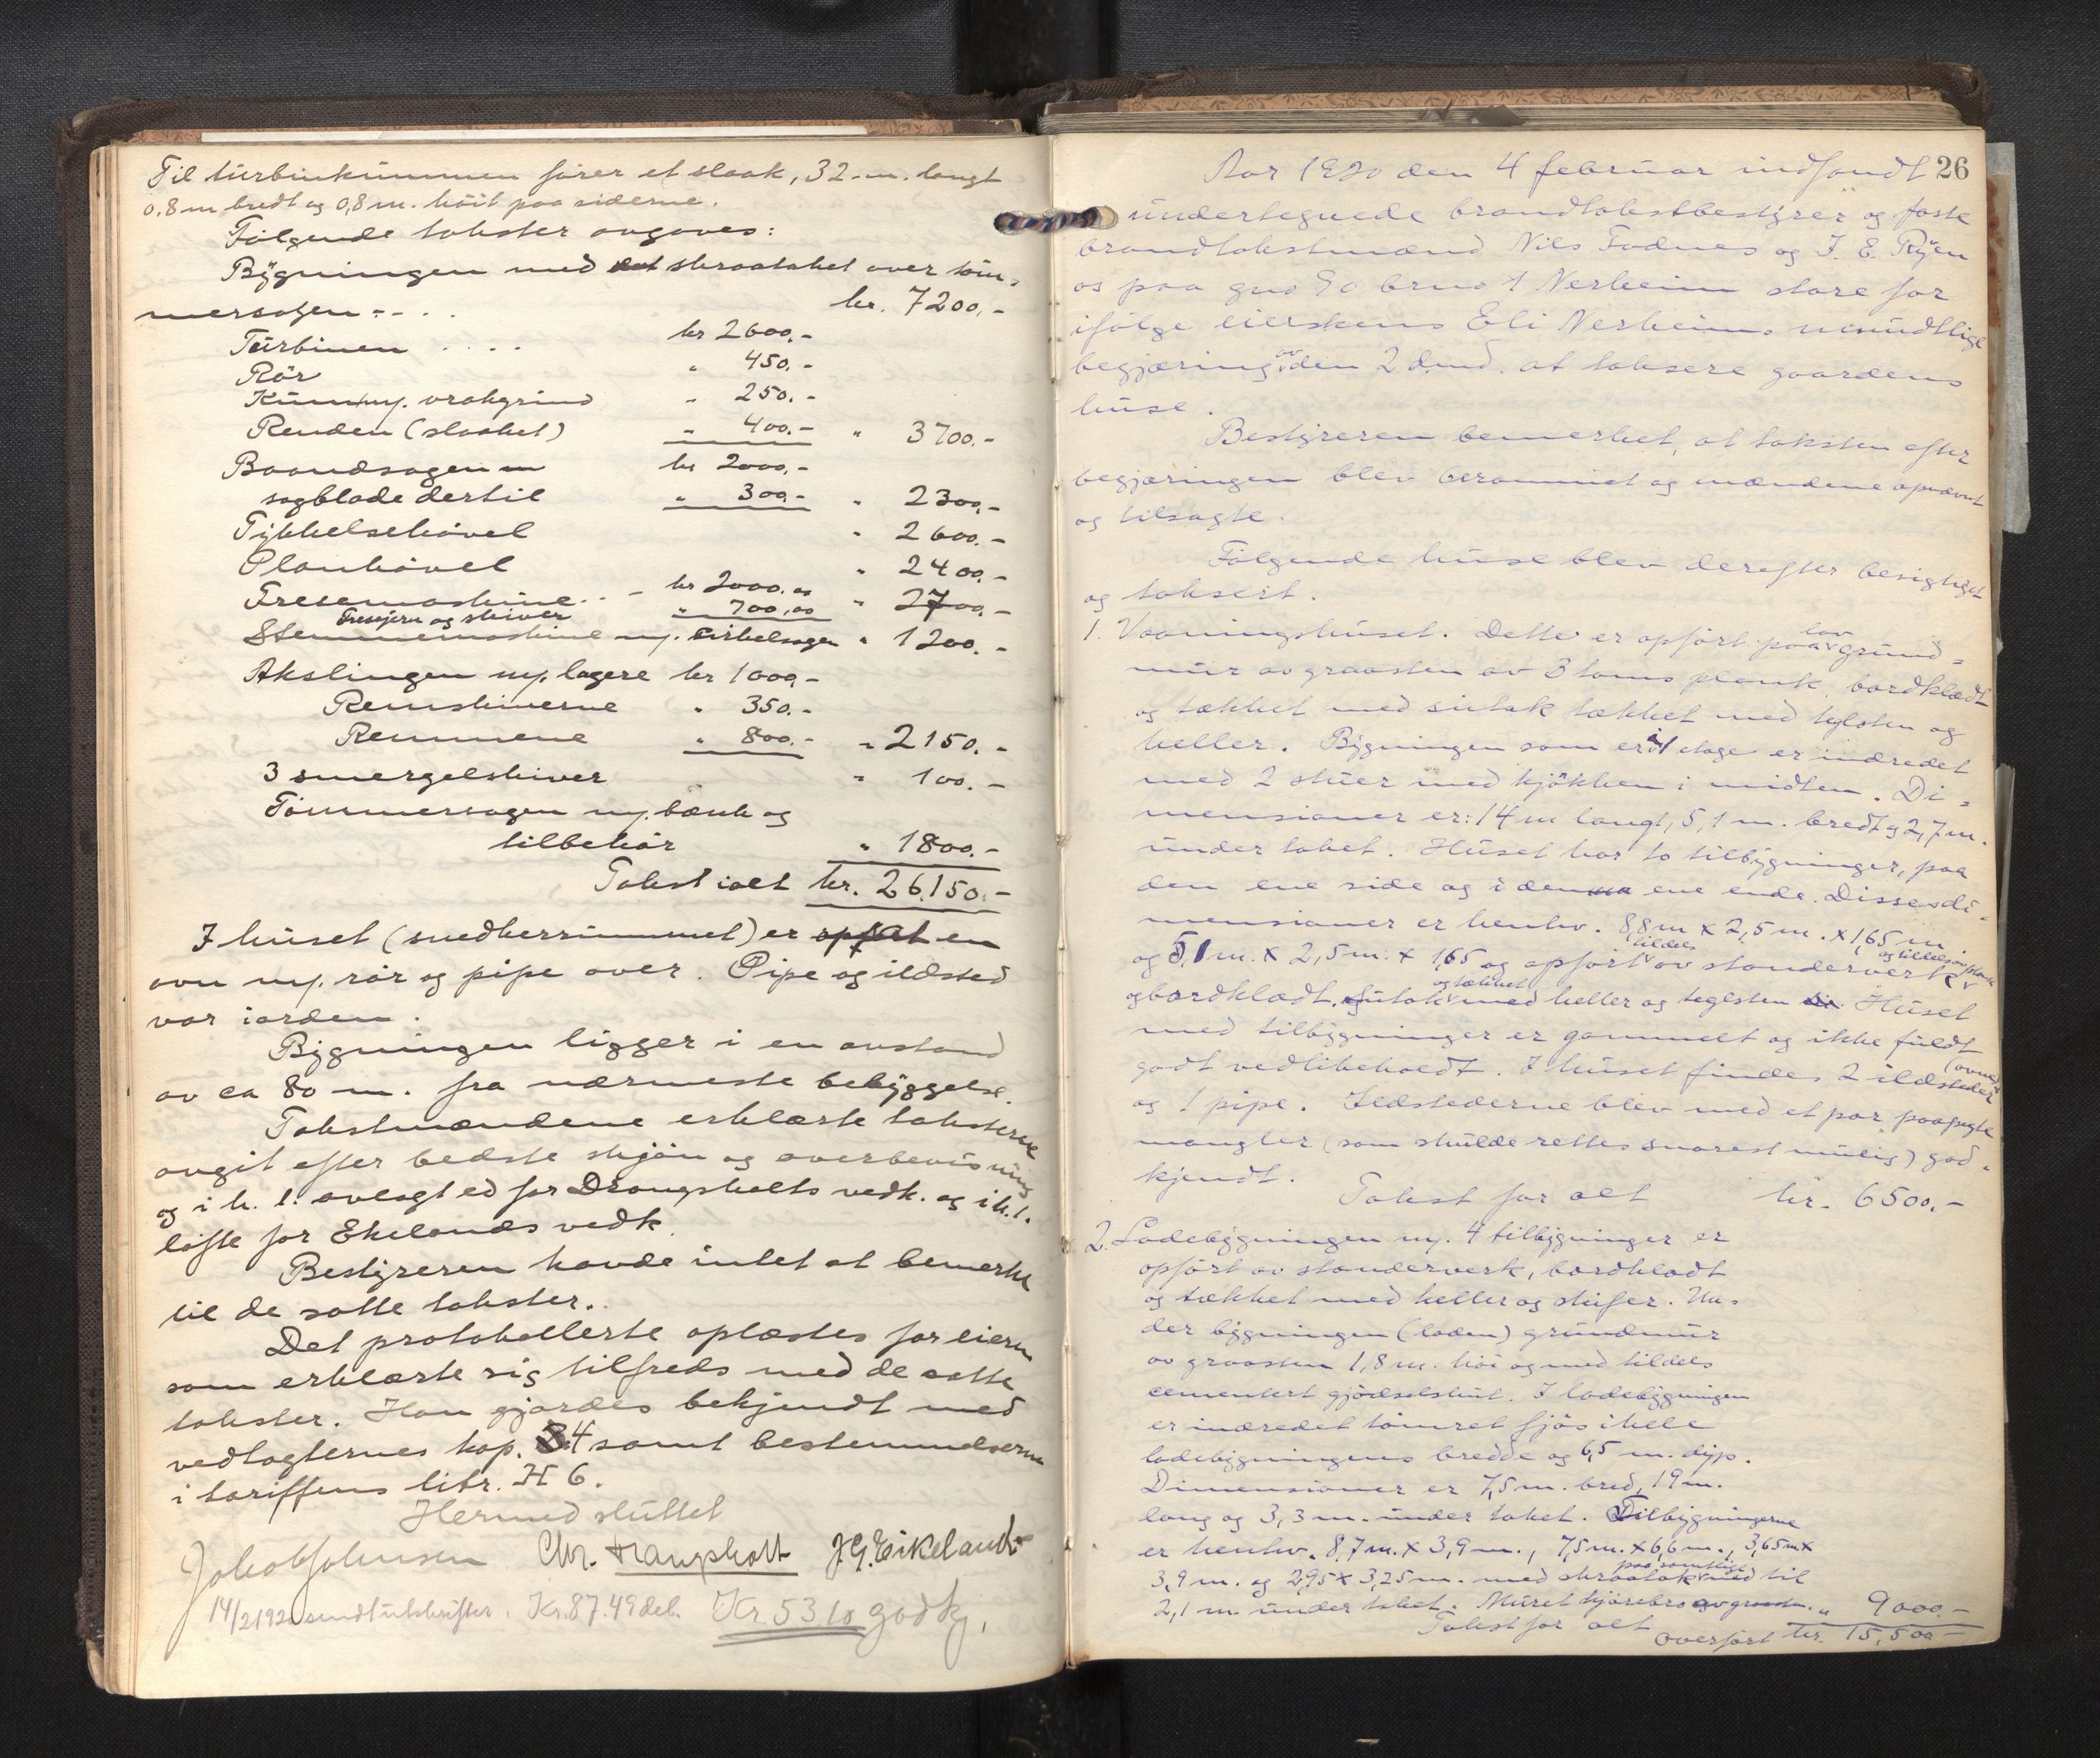 Til turbinkummen fører et slaak, 32 m. langt
0,8 m bredt og 0,8 m. høit paa siderne.
Følgende takster avgaves:
Bygningen med skraataket over töm-
mersagen - - . . kr. 7200,-
Turbinen . . . . kr 2600,-
Rör " 450,-
Kum m/. vrakgrind " 250,-
Renden (slaaket) " 400,- " 3700,-
Baandsagen m kr 2000,-
sagblade dertil " 300,- " 2300,-
Tykkelsehövel " 2600,-
Planhövel " 2400,-
Fresemaskine . . - kr 2000,00
Fresejern og skiver " 700,00 " 2700,-
Stemmemaskine m/. cirkelsagen " 1200,-
Akslingen m/. lagere kr 1000,-
Remskiverne " 350,-
Remmene " 800,- " 2150,-
3 smergelskiver " 100,-
Tömmersagen m/. bænk og
tilbehör " 1800,-
Takst ialt kr. 26.150,-
I huset (snedkerrummet) er en
ovn m/. rör og pipe over. Pipe og ildsted
var iorden.
Bygningen ligger i en avstand
av ca 80 m. fra nærmeste bebyggelse.
Takstmændene erklærte taksterne
avgit efter bedste skjön og overbevisning
og i h. t. avlagt ed for Drangsholts vedk. og i h. t.
löfte for Ekelands vedk.
Bestyreren havde intet at bemerke
til de satte takster.
Det protokollerte oplæstes for eieren
som erklærte sig tilfreds med de satte
takster. Han gjordes bekjendt med
vedtægternes kap. 4 samt bestemmelserne
i tariffens litr. H 6.
Hermed sluttet
Jakob Johnsen Chr. Drangsholt J G. Eikeland
14/2 1920 sendt utskrifter. Kr. 87.49 deb. Kr. 53 10 godkj.
26
Aar 1920 den 4 februar indfandt
undertegnede brandtakstbestyrer og faste
brandtakstmænd Nils Fodnes og J. E. Ryen
os paa gno 90 brno 1 Nerheim store for
ifölge eierskens Eli Nerheims mundtlige
begjæring av den 2 d. md. at taksere gaardens
huse.
Bestyreren bemerket, at taksten efter
begjæringen blev berammet og mændene opnævnt
og tilsagte.
Fölgende huse blev derefter besigtiget
og taksert.
1. Vaaningshuset. Dette er opfört paa lav grund-
mur av graasten av 3 toms plank, bordklædt
og tækket med sutak tækket med teglsten og
heller. Bygningen som er i 1 etage er indredet
med 2 stuer med kjökken i midten. Di-
mensioner er: 14 m langt, 5,1 m. bredt og 2,7 m.
under taket. Huset har to tilbygninger, paa
den ene side og i den ene ende. Disses di-
mensioner er henhv. 8,8 m x 2,5 m. x 1,65 m.
og 5,1 m. x 2,5 m. x 1,65 og opfört tildels av stenderverk og tildels av plank
og bordklædt. Sutak og tækket med heller og teglsten. Huset
med tilbygninger er gammelt og ikke fuldt
godt vedlikeholdt. I huset findes 2 ildsteder (ovner)
og 1 pipe. Ildstederne blev med et par paapegte
mangler (som skulde rettes snarest mulig) god-
kjendt.
Takst for alt kr. 6500,-
2. Ladebygningen m/. 4 tilbygninger er
opfört av stenderverk, bordklædt
og tækket med heller og skifer. Un-
der bygningen (laden) grundmur
av graasten 1,8 m. höi og med tildels
cementert gjödselskut. I ladebygningen
er indredet tömret fjös i hele
ladebygningens bredde og 6,5 m. dyp.
Dimensioner er 7,5 m. bred, 19 m.
lang og 3,3 m. under taket. Tilbygningerne
er henhv. 8,7 m. x 3,9 m., 7,5 m. x 6,6 m., 3,65 m x
3,9 m. og 2,95 x 3,25 m. med skraatak paa samtlige med til
2,1 m. under taket. Muret kjörebro av graasten.
Takst for alt " 9000,-
Overfört kr. 15,500 -